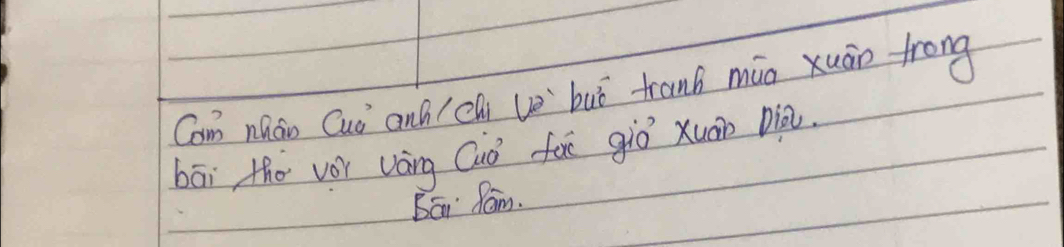 Cảm nhận Của anh/chị Về bức tranh mùa xuân trong
bài thơ vội vàng Của tác giả Xuân Diệu.
Bài làm.